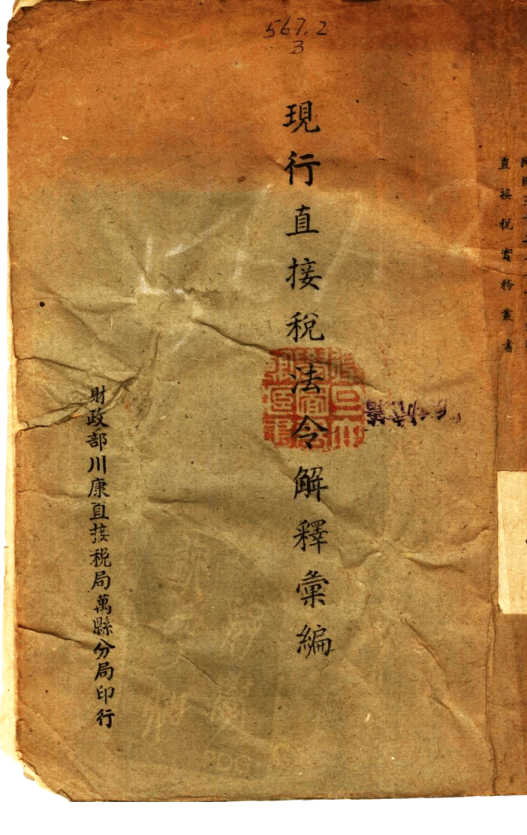 567.2
3
直接稅實務叢書
現行直接稅法令解釋彙編
財政部川康直接稅局萬縣分局印行